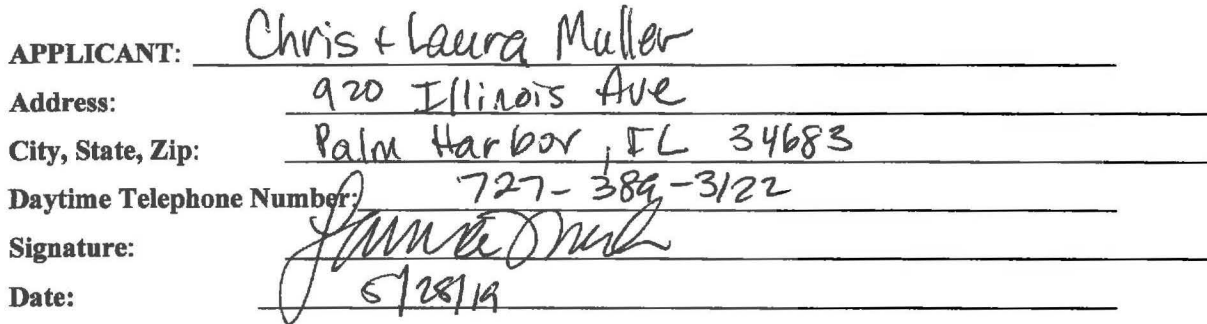 APPLICANT: Chris + Laura Muller
Address: 920 Illinois Ave
City, State, Zip: Palm Harbor, FL 34683
Daytime Telephone Number: 727-389-3122
Signature:
Date: 5/28/19